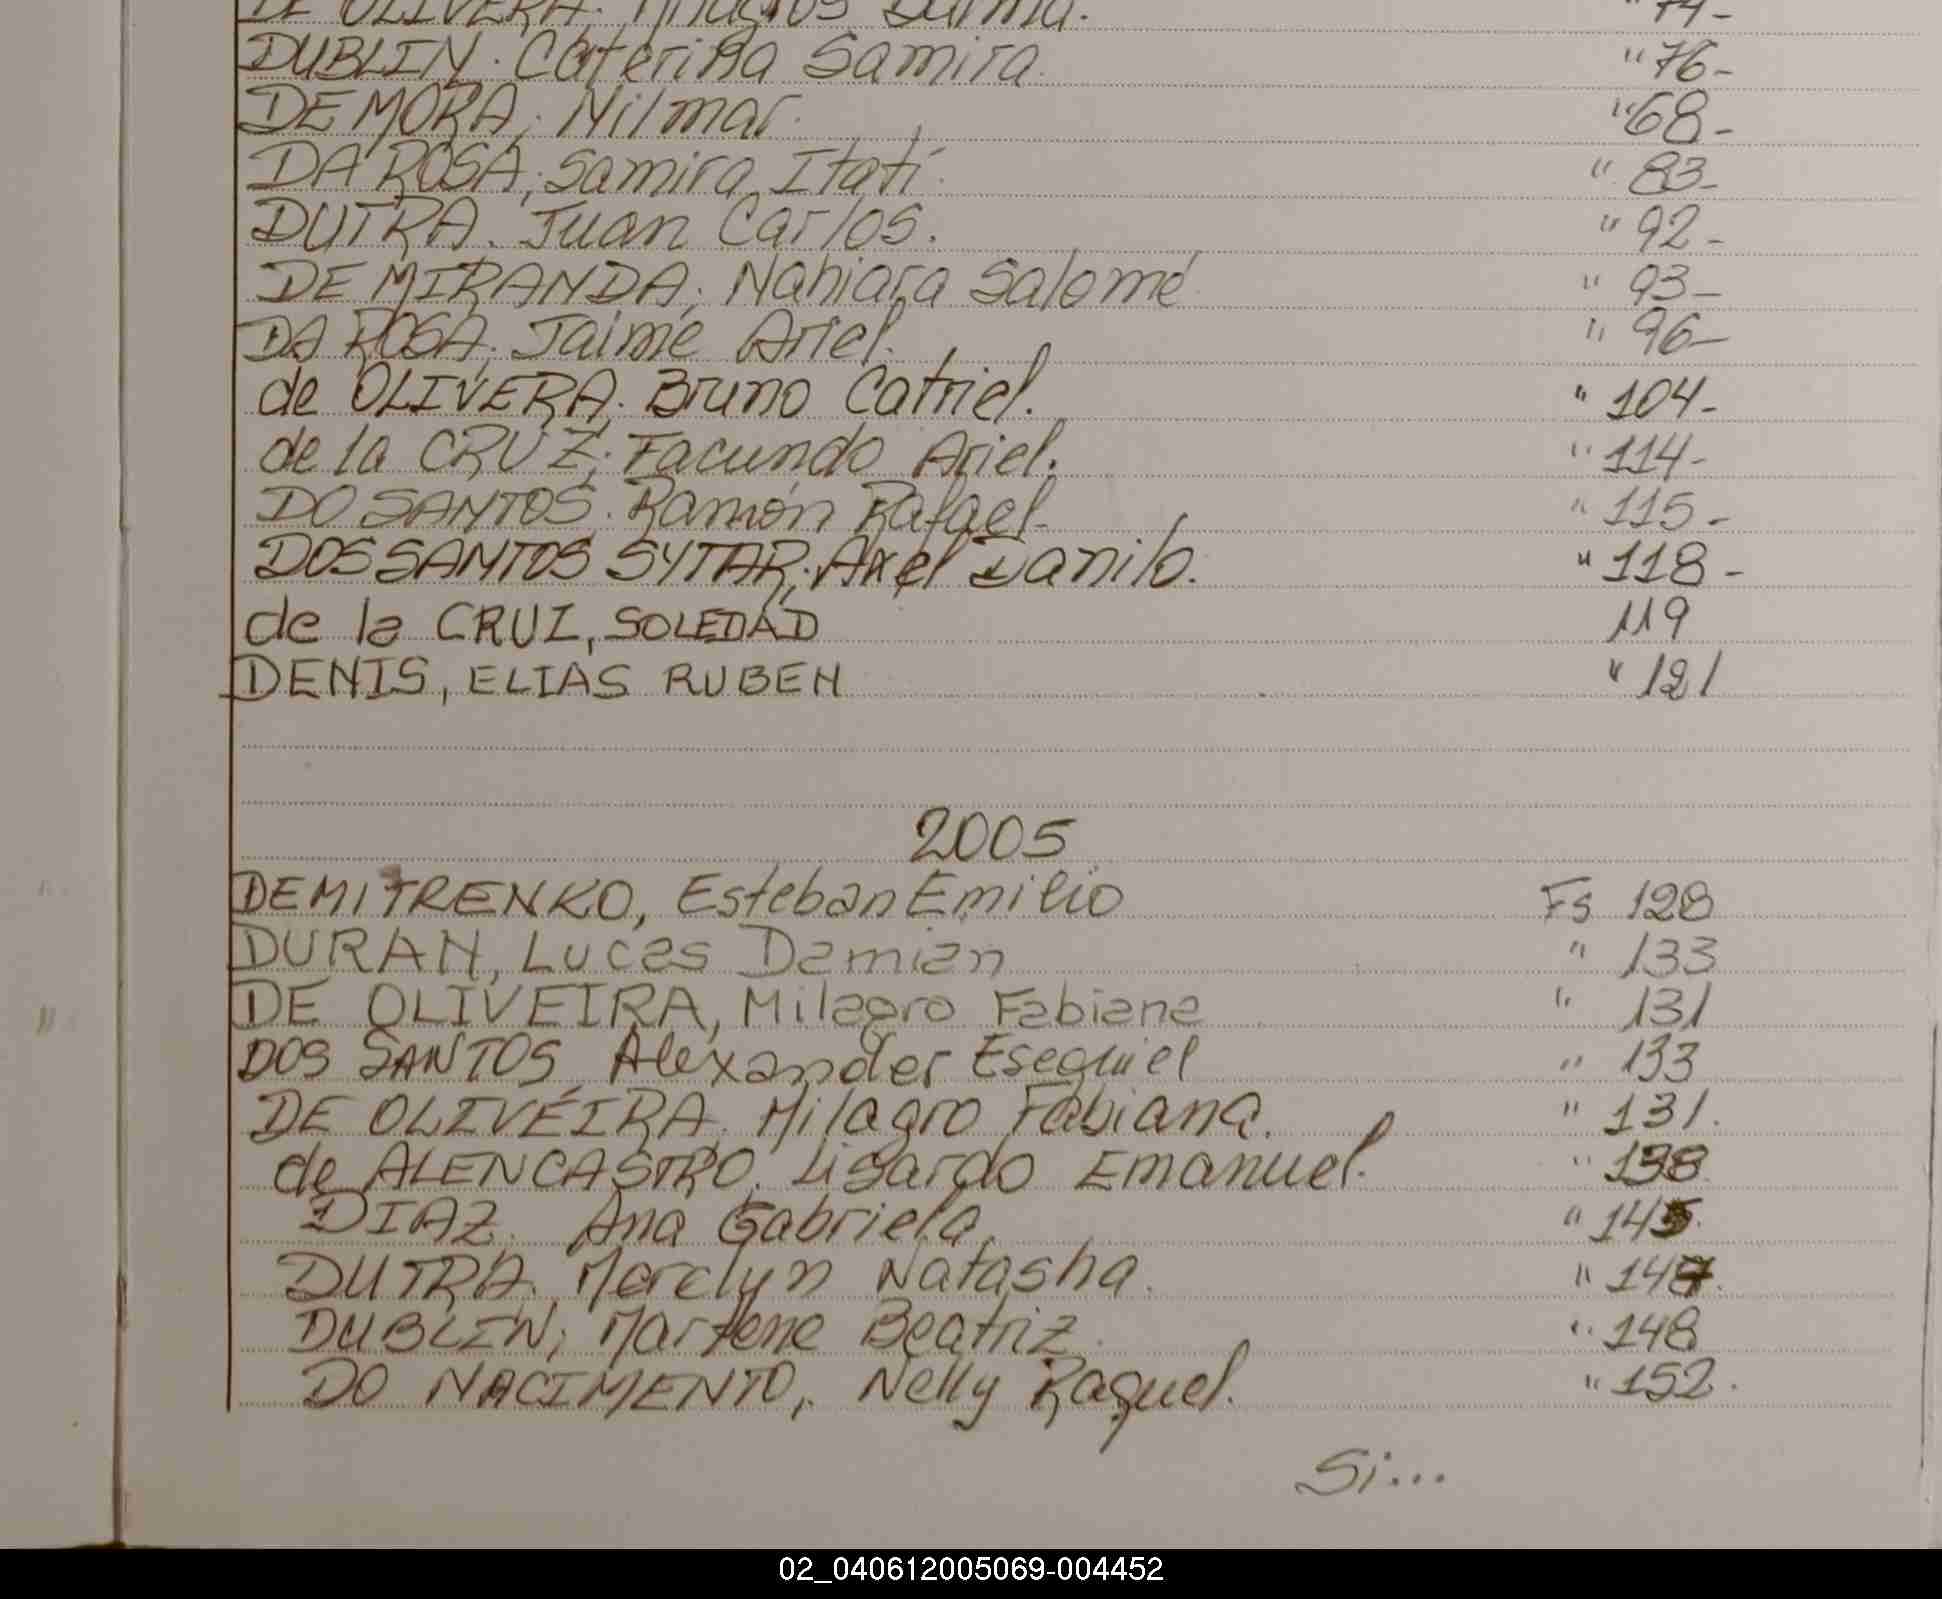 DE OLIVERA. Milagros 74-
DUBLIN. Caterina Samira. " 76-
DE MORA, Nilmar. " 68-
DA ROSA, Samira Itatí. " 83-
DUTRA. Juan Carlos. " 92-
DE MIRANDA, Nahiara Salomé " 93-
DA ROSA, Jaime Ariel. " 96-
de OLIVERA. Bruno Catriel. " 104-
de la CRUZ, Facundo Ariel. " 114-
DO SANTOS. Ramón Rafael- " 115-
DOS SANTOS SYTAR, Axel Danilo. " 118-
de la CRUZ, SOLEDAD 119
DENIS, ELIAS RUBEN " 121
2005
DEMITRENKO, Esteban Emilio Fs 128
DURAN, Lucas Damian " 133
DE OLIVEIRA, Milagro Fabiana " 131
DOS SANTOS, Alexander Esequiel " 133
DE OLIVEIRA, Milagro Fabiana. " 131.
de ALENCASTRO. Lisardo Emanuel. " 138
DIAZ. Ana Gabriela. " 145.
DUTRA, Merclyn Natasha. " 147.
DUBLIN, Marlene Beatriz. " 148
DO NACIMENTO, Nelly Raquel. " 152.
Si...
02_040612005069-004452